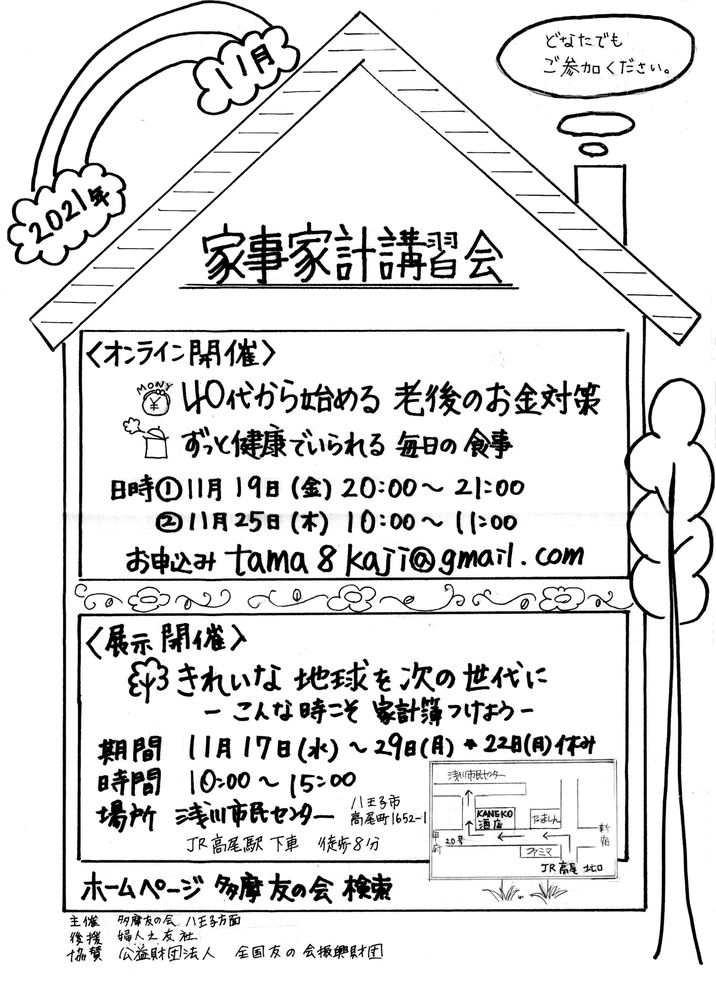 2021年
11月
どなたでも
ご参加ください。
家事家計講習会
〈オンライン開催〉
MONY
¥
40代から始める 老後のお金対策
ずっと健康でいられる 毎日の食事
日時①11月19日(金) 20:00〜21:00
②11月25日(木) 10:00〜11:00
お申込み tama8kaji@gmail.com
〈展示開催〉
きれいな地球を次の世代に
ーこんな時こそ 家計簿つけようー
期間 11月17日(水)〜29日(月) *22日(月)休み
時間 10:00〜15:00
場所 浅川市民センター 八王子市
高尾町1652-1
JR高尾駅下車 徒歩8分
浅川市民センター
KANEKO
酒店
たましん
甲府
20号
新宿
ファミマ
JR高尾 北口
ホームページ 多摩友の会 検索
主催 多摩友の会 八王子方面
後援 婦人之友社
協賛 公益財団法人 全国友の会振興財団